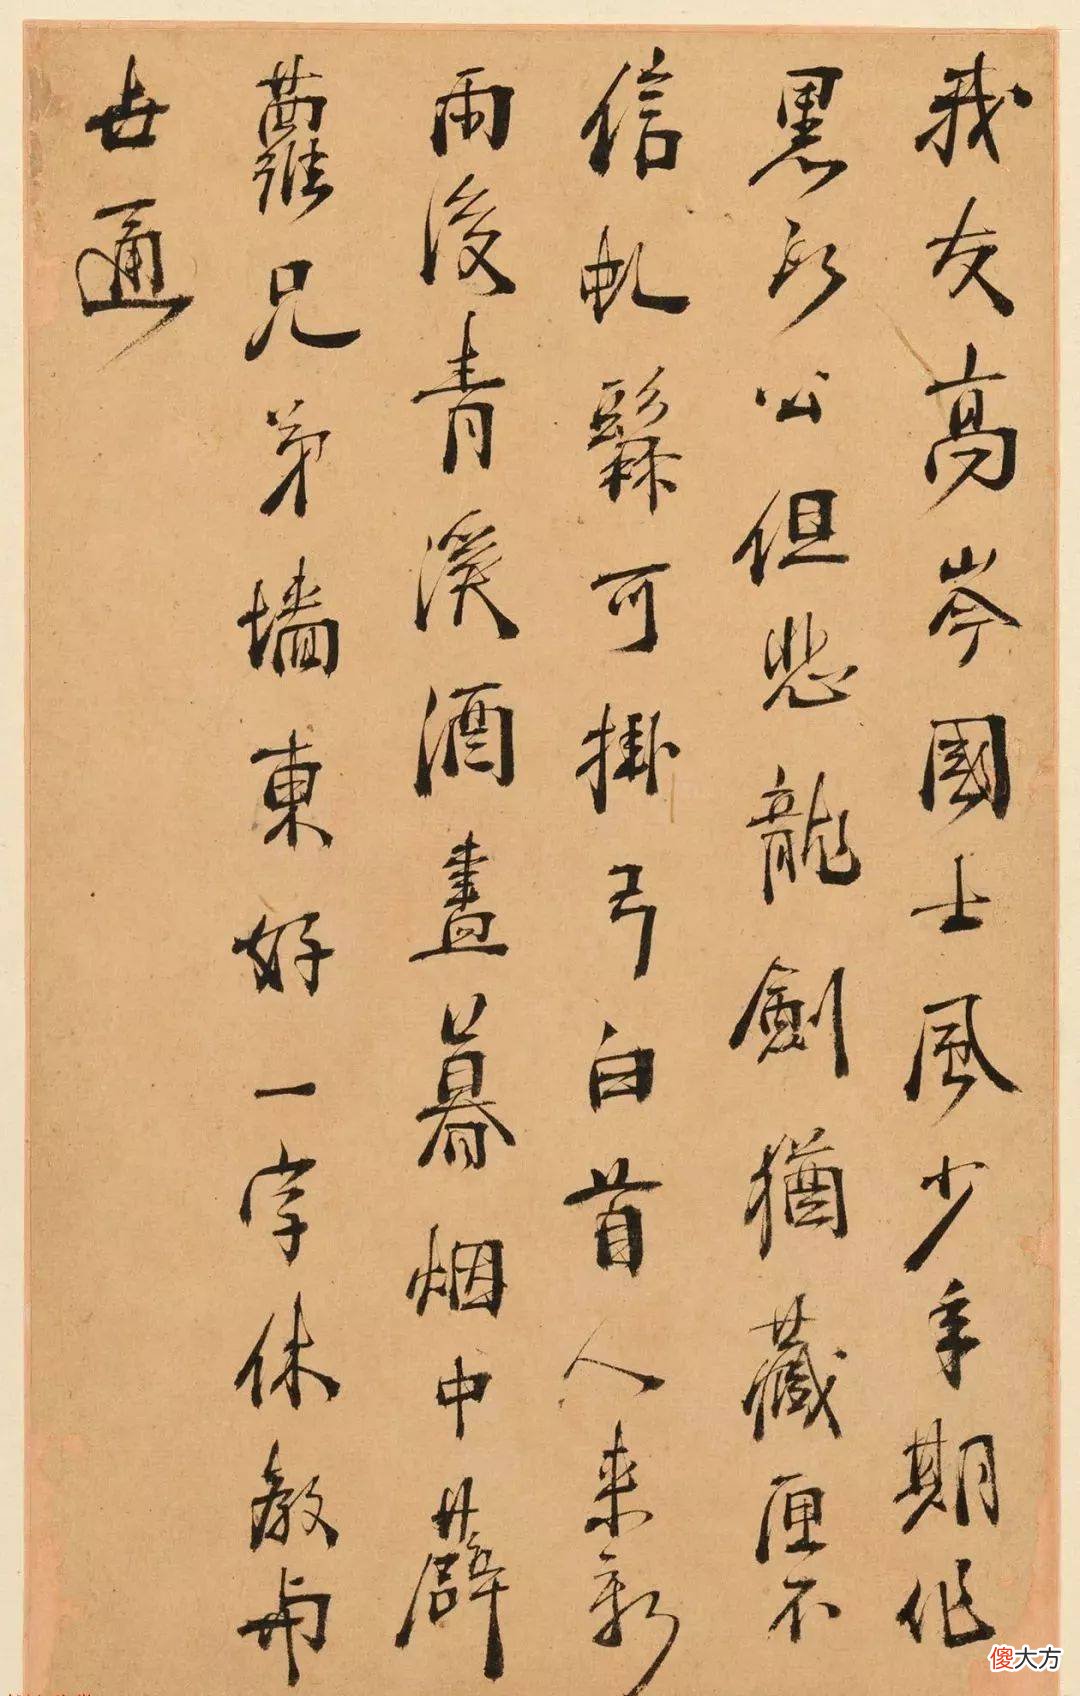 我友高岑國士風少年期作
黑頭公但悲龍劍猶藏匣不
信虬髯可掛弓白首人来新
雨後青溪酒盡暮烟中薜
蘿兄弟墙東好一字休教与
世通
傻大方